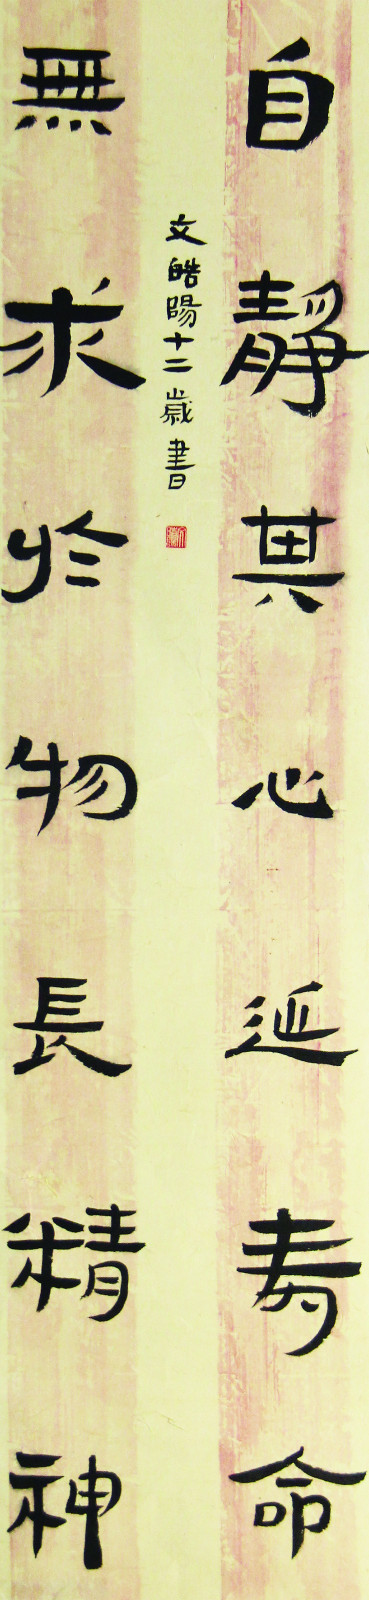 自靜其心延寿命
無求於物長精神
文皓陽十二歲書